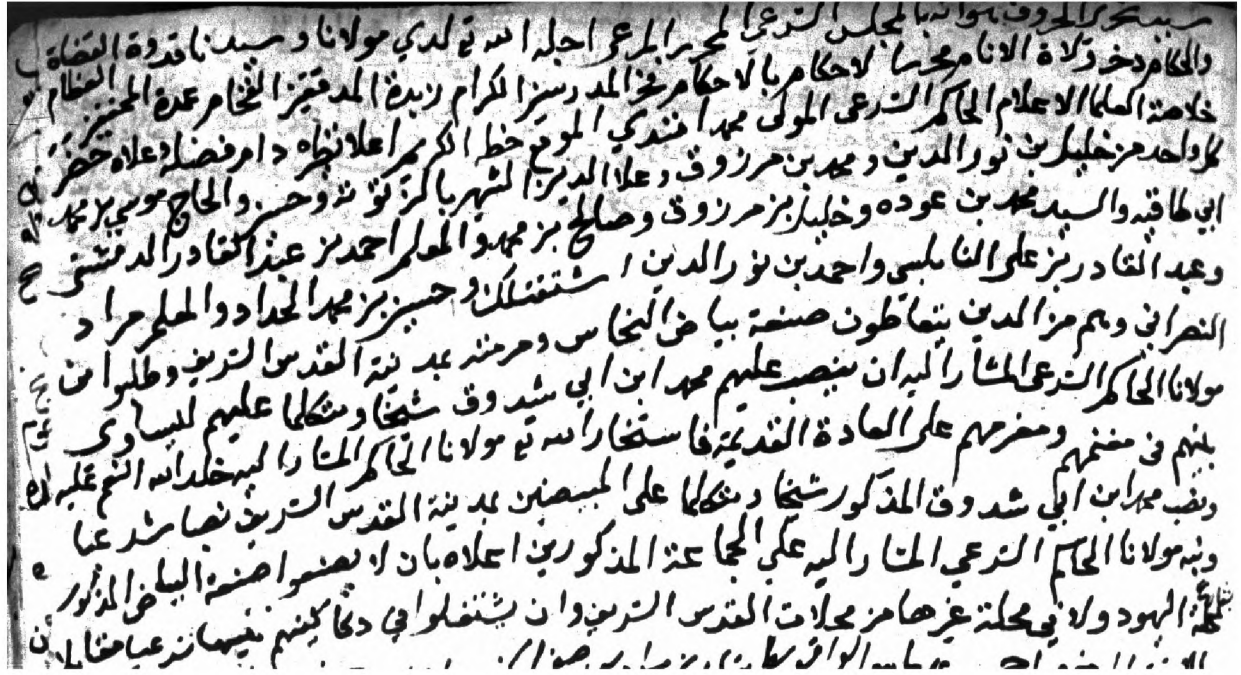 سبب تحرير الحروف هو انه بالمجلس الشرعي المحرر المرعي اجله الله تع لدي مولانا وسيدنا قدوة القضاة
والحكام ذخر ولاة الانام محرر الاحكام بالاحكام فخر المدرسين الكرام زبدة المدققين الفخام عمدة المحققين العظام
خلاصة العلما الاعلام الحاكم الشرعي المولى محمد افندي الموقع خطه الكريم اعلا نظيره دام فضله وعلاه حضر
كل واحد من خليل بن نور الدين ومحمد بن مرزوق وعلا الدين الشهير وحسن والحاج موسى بن محمد
ابي طاقيه والسيد محمد بن عوده وخليل بن مرزوق وصالح بن محمد والمعلم احمد بن عبد القادر الدمشقي
وعبد القادر بن علي النابلسي واحمد بن نور الدين وحسين بن محمد الحداد والمعلم مراد
النصراني وهم من الذين يتعاطون صنعة بياض النحاس ومرمته بمدينة القدس الشريف وطلبوا من
مولانا الحاكم الشرعي المشار اليه ان ينصب عليهم محمد ابن ابي شدوق شيخا ومتكلما عليهم ليساوي
بينهم في مغنمهم ومغرمهم على العادة القديمة فاستخار الله تع مولانا الحاكم المشار اليه خلد الله النعم عليه
ونصب محمد ابن ابي شدوق المذكور شيخا ومتكلما على المبيضين بمدينة القدس الشريف نصبا شرعيا
ونبه مولانا الحاكم الشرعي المشار اليه على الجماعة المذكورين اعلاه بان لا يصنعوا صنعة البياض المذكور
بمحلة اليهود ولا في محلة غيرها من محلات القدس الشريف وان يشتغلوا في دكاكينهم تنبيها شرعيا مقابلا